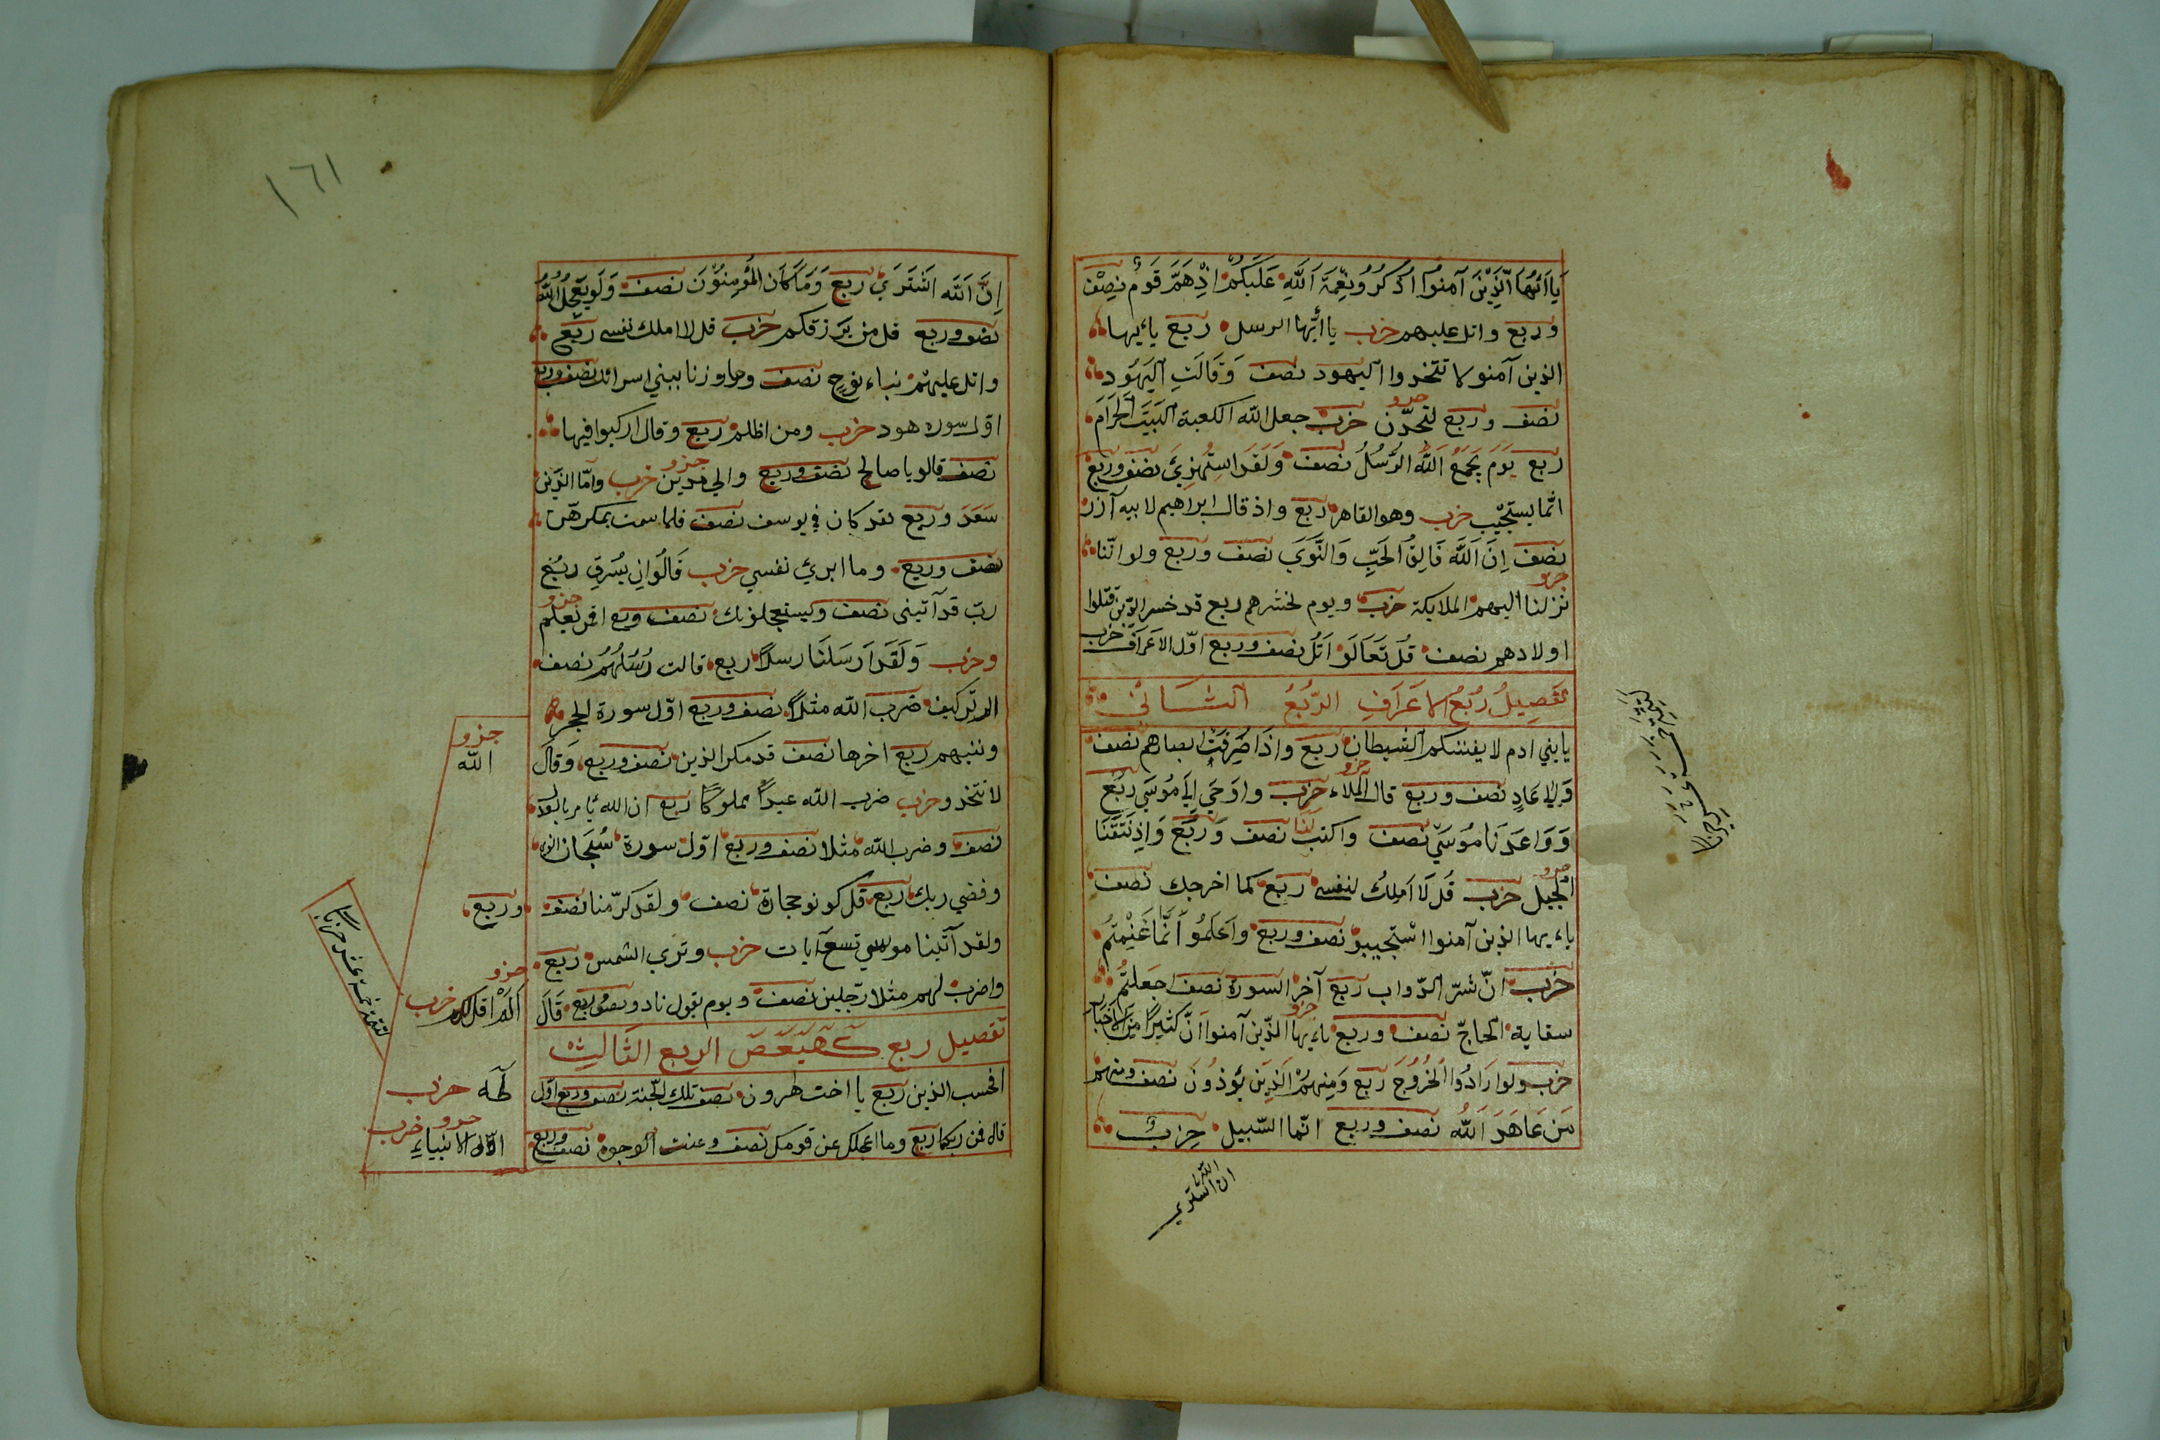 يا ايُّها الَّذِينَ آمنوا اذكُرُوا نِعْمَةَ اَللهِ عَلَيكُمْ اذْهَمَّ قَومٌ نِصْفٌ
وربع واتل عليهم حزب يا أيُّها الرسل ربع يا ءيها
الذين آمنو لا تتخدوا اليهود نصف وَقَالَتِ اليَهُود
نصف وربع لتجدّن جزو حزب جعل الله الكعبة البَيتَ الحَرَامَ
ربع يَومَ يَجمَعُ اللهُ الرُسُلُ نصف وَلَقَدِ اسْتُهزِئَ نصف وربع
انّما يستجيب حزب وهو القاهر ربع واذ قال ابراهيم لابيه آزر
نصف اِنَ اَللَّهَ فَالِقُ الحَبِّ وَالنَّوَىَ نصف وربع ولو انّنا
جزو
نزلنا اليهم الملايكة حزب ويوم نحشرهم ربع قد خسر الذين قتلوا
اولادهم نصف قُل تَعَالَو اَتلُ نصف وربع اوّل الاعراف حزب
تفصِيلُ رُبُعُ الاَعرَافِ الرُّبُعُ الثَّانِي
يا بني ادم لا يفتننكم الشيطان ربع واذَا صُرِفَتْ ابصارهم نصف
وَاِلى عَادٍ نصف وربع قال الملاء جزو حزب واوحي الَى مُوسَى ربع
وَوَاعَدنَا مُوسَى نصف واكتب لنا نصف وربع وَاِذ نَتَقنَا
الجبل جزو حزب قُل لَا اَملِكُ لنفسى ربع كما اخرجك نصف
ياءيها الذين آمنوا استجيبو نصف وربع واعلمُو اَنَّمَا غَنِمْتُم
حزب انّ شرّ الدّواب ربع آخر السورة نصف اجعلتُم
سقاية الحاجّ نصف وربع ياءيها الذّين آمنوا انَّ كثيرًا من الاحبار جزو
حزب ولو ارَادُوا الخُرُوجَ ربع وَمِنهُمُ الَذِينَ يُؤذُونَ نصف ومنهم
مَن عَاهَدَ اللهَ نصف وربع انّما السّبيل حزب
ان الله اشترى
١٦١
اِنَّ اَللَه اشَتَرَىَ ربع وَمَا كَانَ المُؤمِنُونَ نصف وَلَو يُعَجِلُ اللهُ
نصف وربع قل من يَرزقكم حزب قل لا املك لنفسى ربع
واتل عليهم نباء نوح نصف وجاوزنا ببني اسرائل نصف وربع
اوّل سوره هود حزب ومن اظلم ربع وقال اركبوا فيها
نصف قالو يا صالح نصف وربع والي مدين جزو حزب وامّا الذين
سَعَدَ وربع لقد كان في يوسف نصف فلما سمت بمكرهنّ
نصف وربع وما ابرئ نفسي حزب قَالُوَا اِن يَسرَق ربع
ربّ قد آتيتنى نصف ويستعجلونك نصف وربع افمن يعلم جزو
وحزب وَلَقَد اَرسَلنَا رسلاً ربع قالت رُسُلُهُم نصف
الم تركيف ضرب الله مثلاً نصف وربع اوّل سورة الحجر
ونبيهم ربع اخرها نصف قد مكر الذين نصف وربع وَقَالَ
جزو
الله
لا تتخذو حزب ضرب الله عبداً مملوكا ربع ان الله يامر بالعدل
نصف وضرب الله مثلا نصف وربع اوّل سورة سُبحَان الذي
وقضي ربك ربع قل كونو حجارة نصف ولقد كرّمنا نصف وربع
ولقد آتينا موسي تسعَ آيات حزب وتري الشمس ربع
واضرب لهم مثلا رّجلين نصف ويوم يقول نادو نصف وربع قَالَ
جزو
اَلَمْ اقل لك حزب
تفصيل ربع كَهيَعَصَ الربع الثّالث
افحسب الذين ربع يا اخت هرون نصف تلك الجنّة نصف وربع اوّل
طَه حزب
قال فمن ربكما ربع وما اعجلك عن قومك نصف وعنت الوجوه نصف وربع
اوّل الانبياءِ جزو حزب